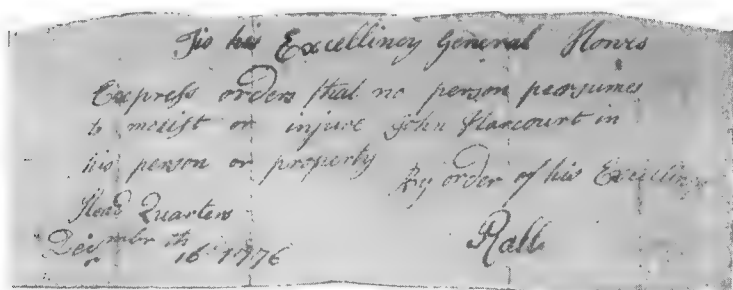 Tis his Excellincy General Howes
Express orders that no person pearsumes
to molist or injure John Harcourt in
his person or property
By order of his Excellincy
Head Quarters
Decembr 16th 1776
Rall